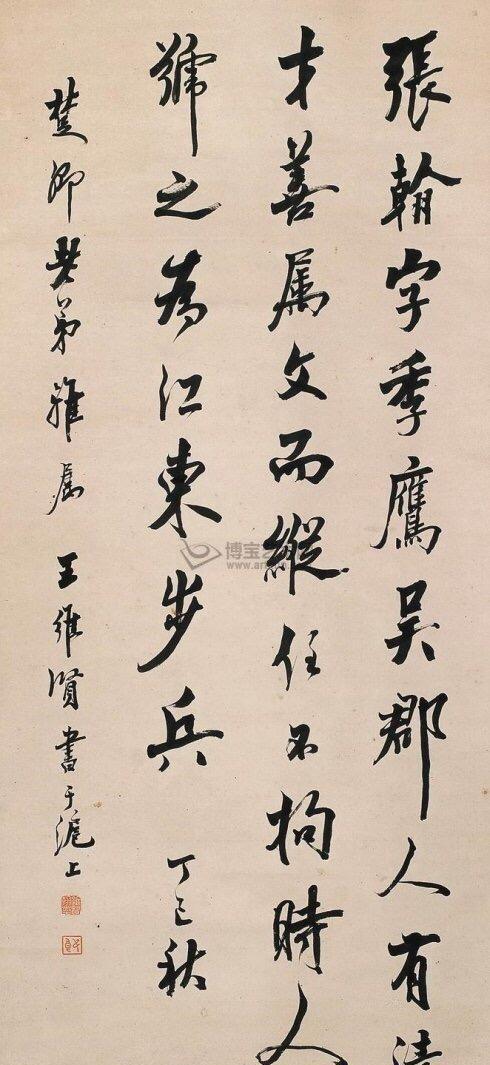 張翰字季鷹吳郡人有清
才善屬文而縱任不拘時人
號之為江東步兵 丁巳秋
楚卿世弟雅屬 王維賢書于滬上
博宝